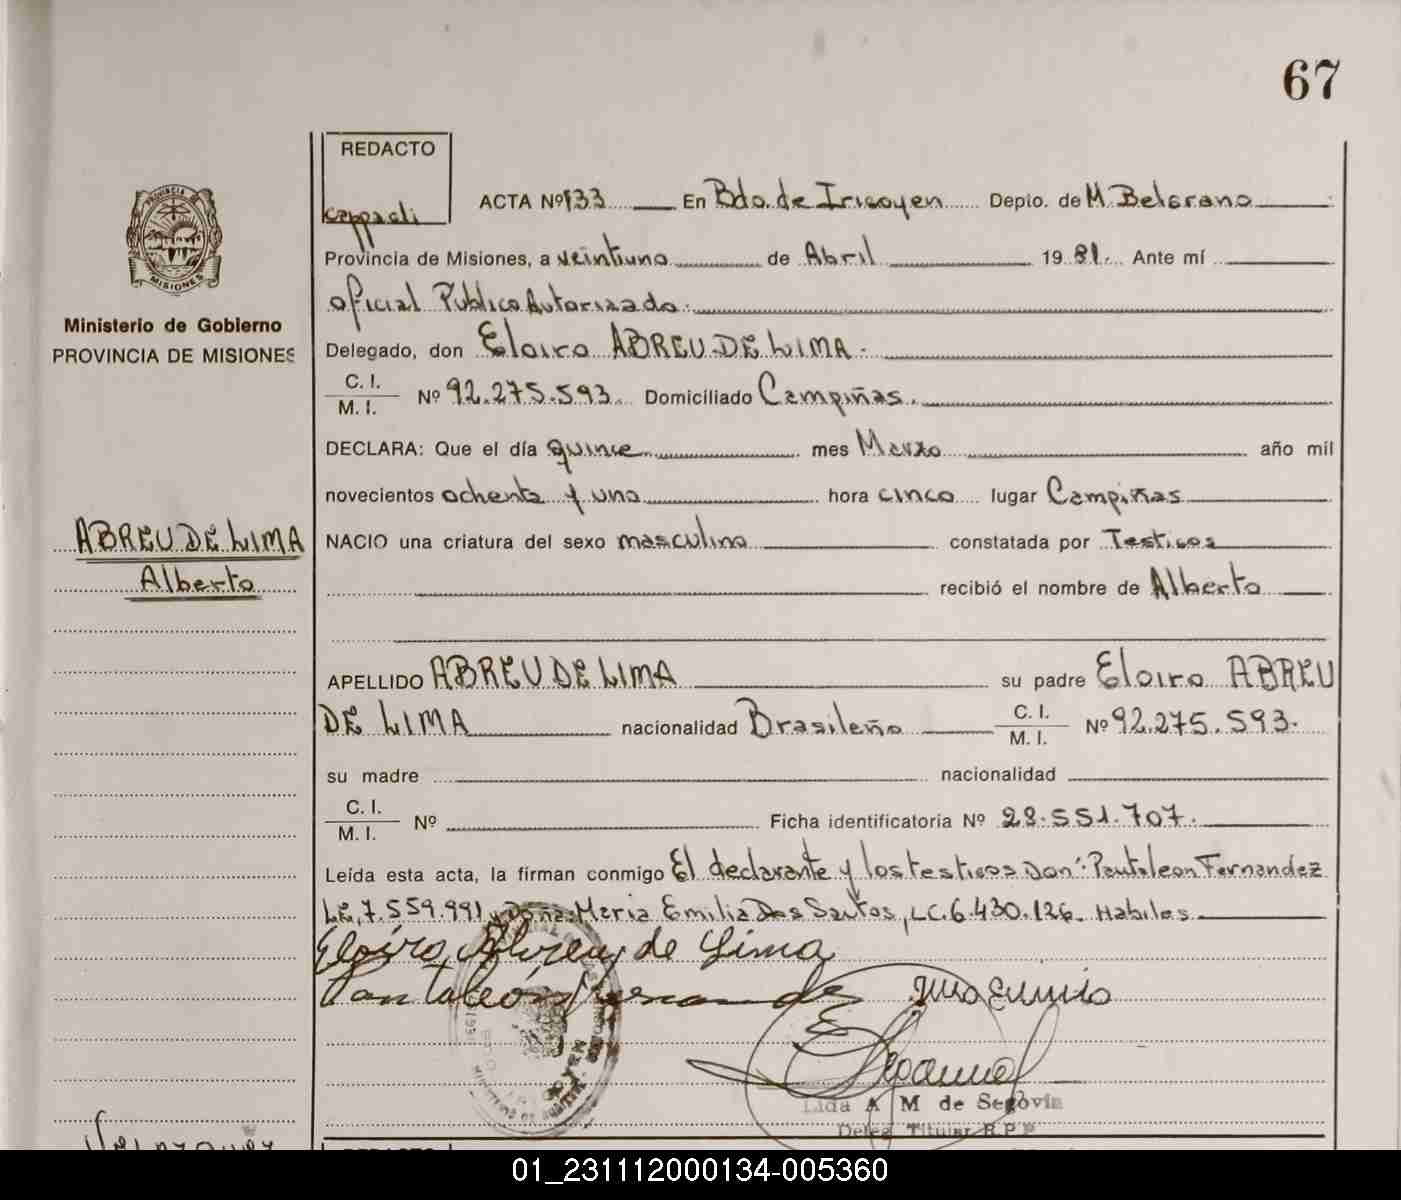 67
REDACTO
ACTA Nº 133 En Bdo. de Irigoyen Depto. de M. Belgrano
PROVINCIA DE
MISIONES
Provincia de Misiones, a veintiuno de Abril 19 81. Ante mí
oficial Publico Autorizado.
Ministerio de Gobierno
PROVINCIA DE MISIONES
Delegado, don Eloiro ABREU DE LIMA.
C. I.
M. I. Nº 92.275.593. Domiciliado Campiñas.
DECLARA: Que el día quince mes Marzo año mil
novecientos ochenta y uno hora cinco lugar Campiñas
ABREU DE LIMA
Alberto
NACIO una criatura del sexo masculino constatada por Testigos
recibió el nombre de Alberto
APELLIDO ABREU DE LIMA su padre Eloiro ABREU
DE LIMA nacionalidad Brasileño C. I. M. I. Nº 92.275.593.
su madre nacionalidad
C. I.
M. I. Nº Ficha identificatoria Nº 28.551.707.
Leída esta acta, la firman conmigo El declarante y los testigos Don: Pantaleon Fernandez
L.E. 7.559.991 y Doña: Maria Emilia Dos Santos, LC. 6.430.126. Habiles
Eloiro Abreu de Lima
Pantaleón Fernandez
Lida A M de Segovia
Deleg Titular R.P.P
01_231112000134-005360